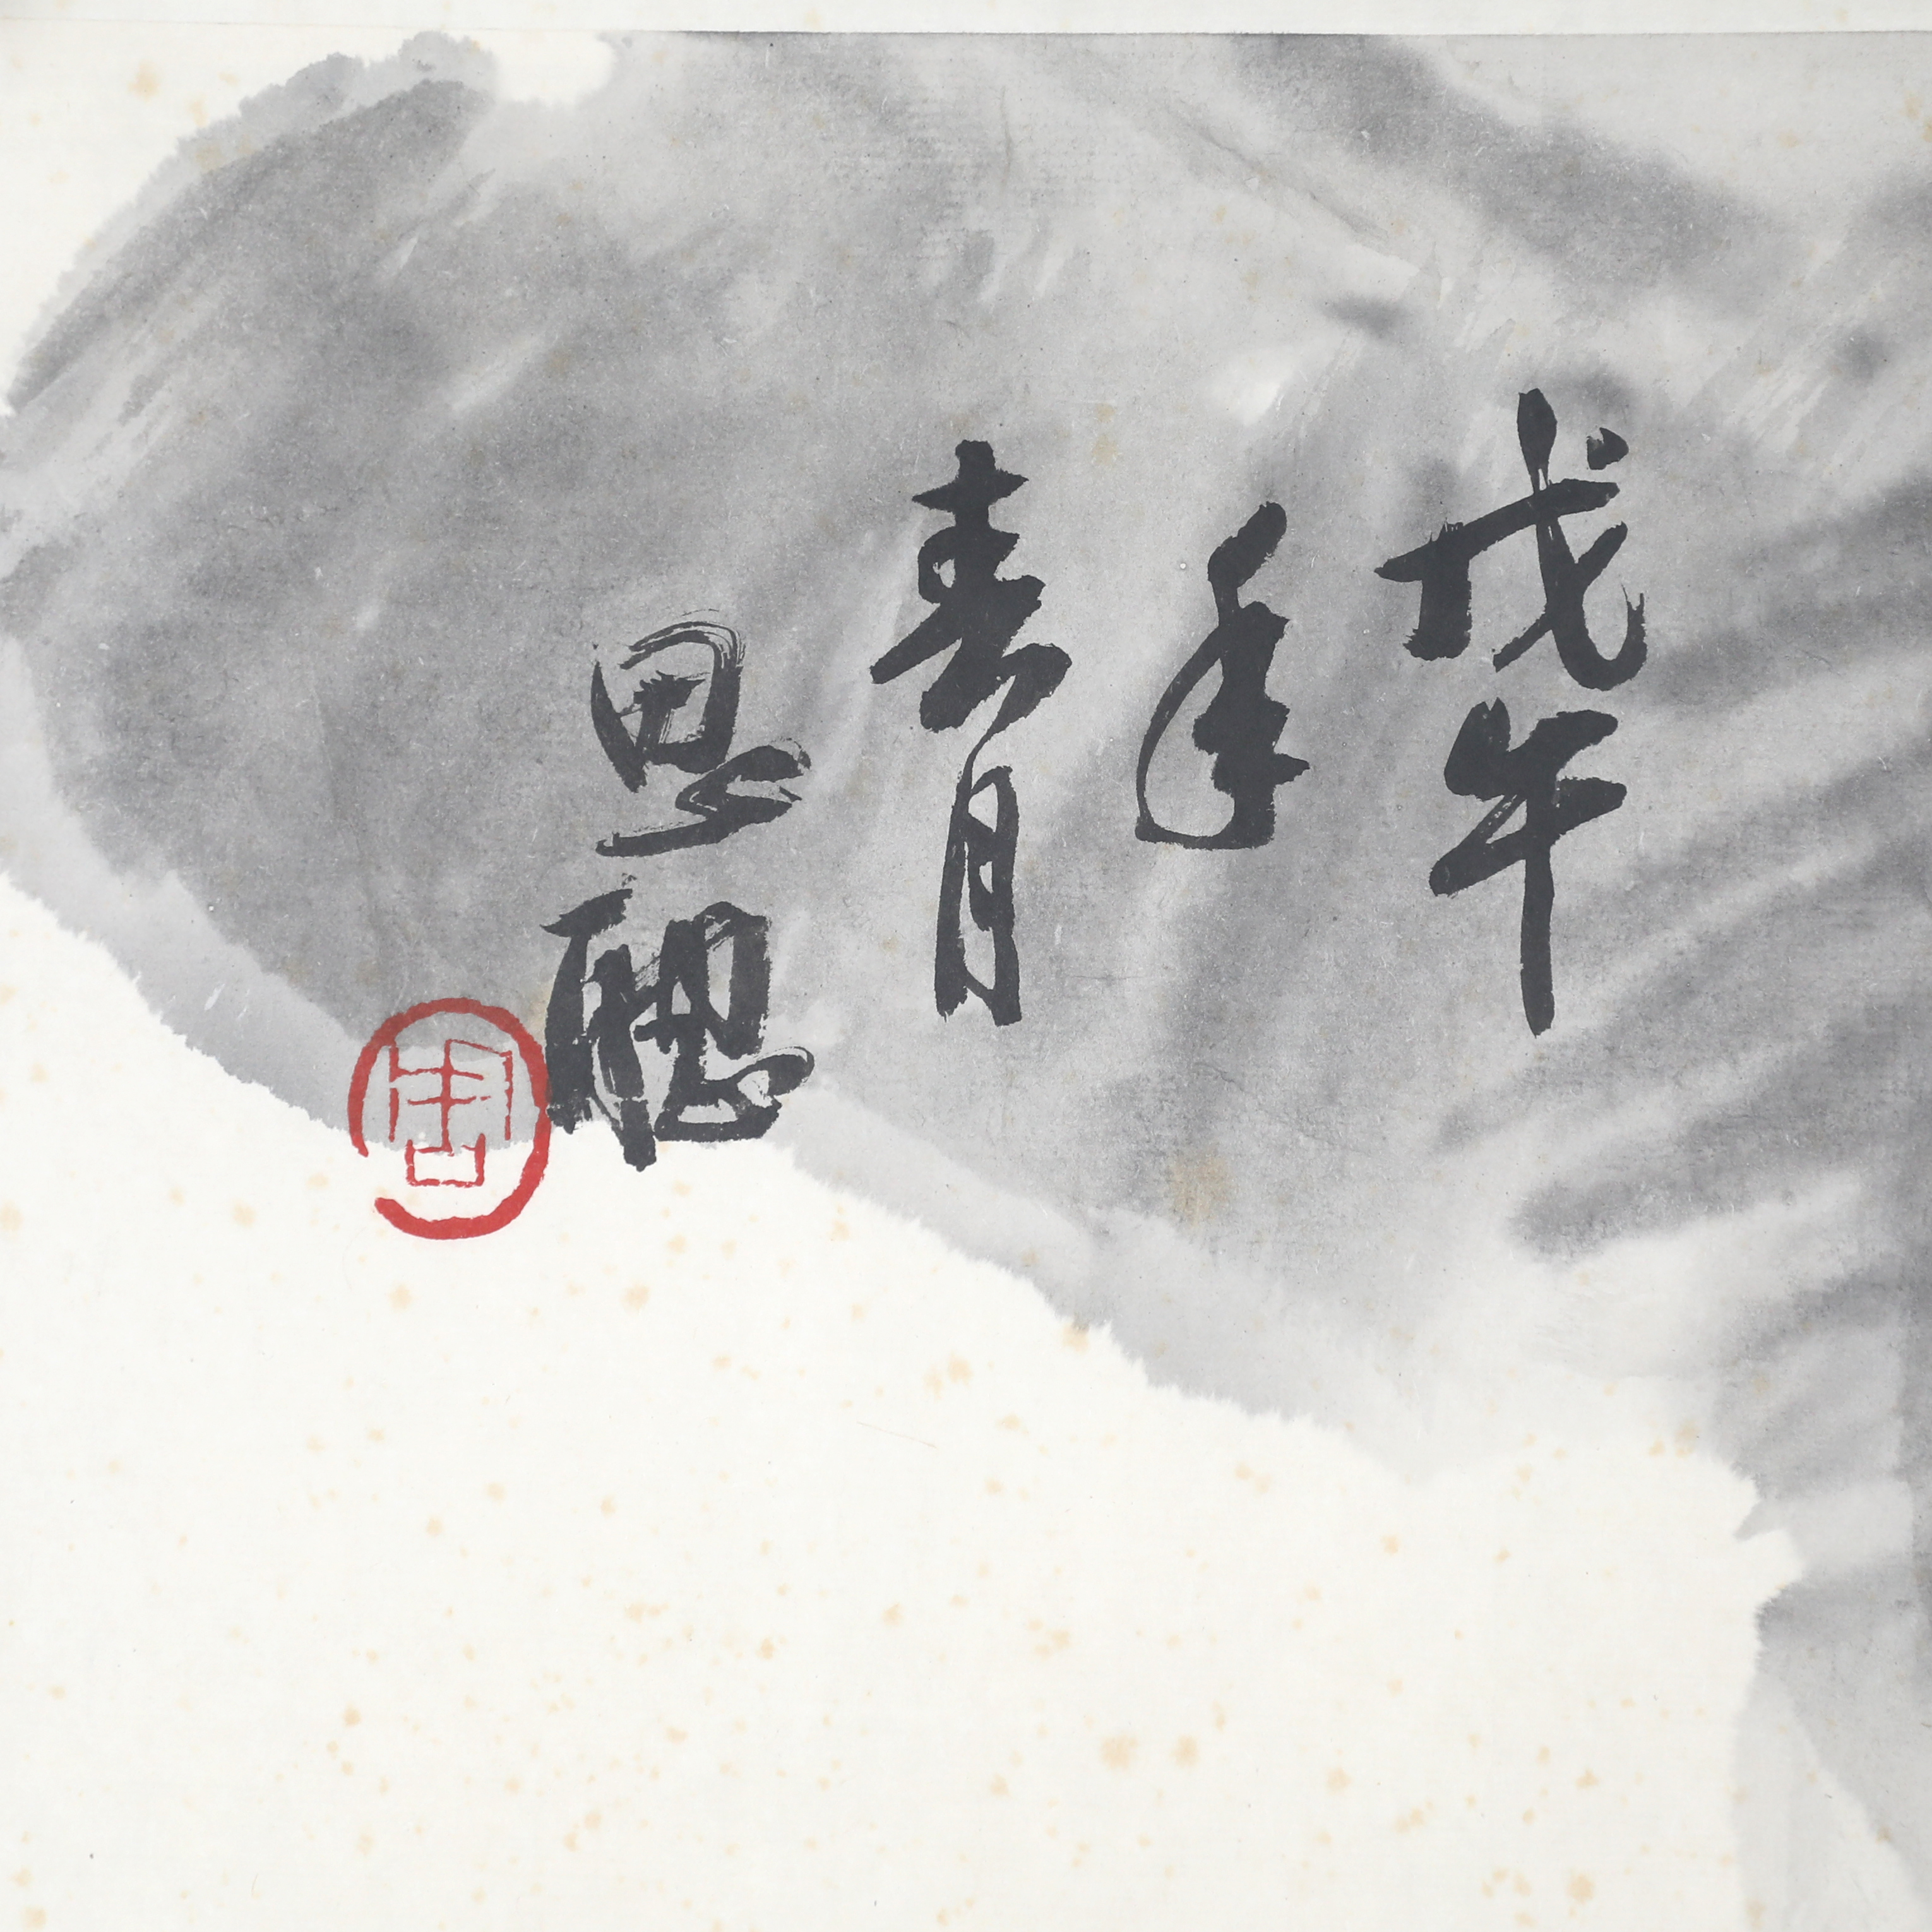 戊午
年
春
思聰
周